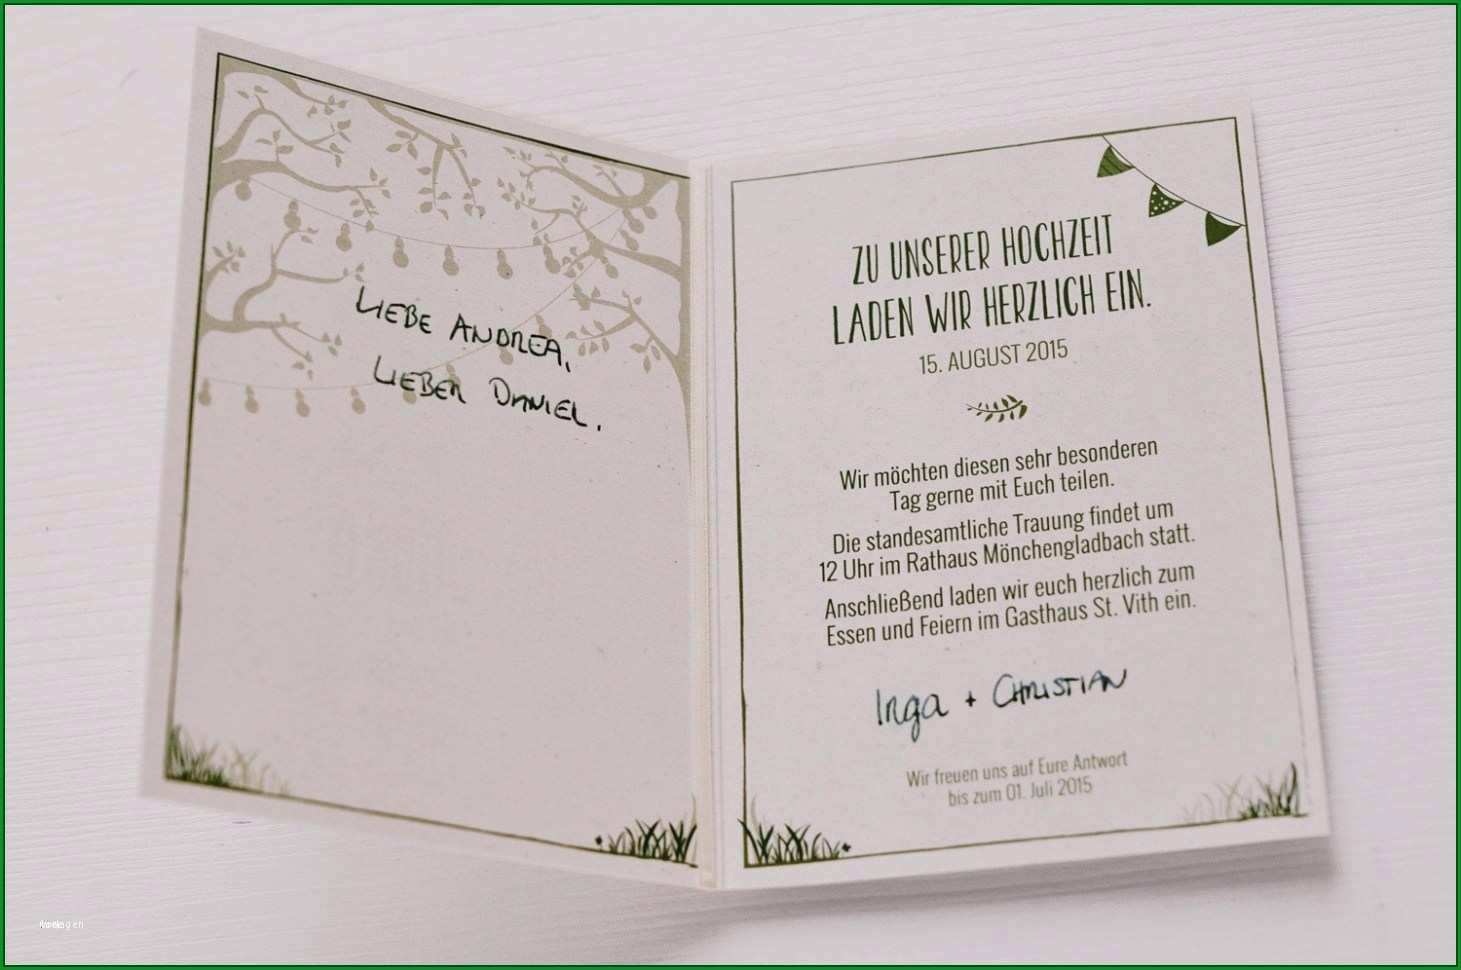 LIEBE ANDREA,
LIEBER DANIEL.
ZU UNSERER HOCHZEIT
LADEN WIR HERZLICH EIN.
15. AUGUST 2015
Wir möchten diesen sehr besonderen
Tag gerne mit Euch teilen.
Die standesamtliche Trauung findet um
12 Uhr im Rathaus Mönchengladbach statt.
Anschließend laden wir euch herzlich zum
Essen und Feiern im Gasthaus St. Vith ein.
Inga + CHRISTIAN
Wir freuen uns auf Eure Antwort
bis zum 01. Juli 2015